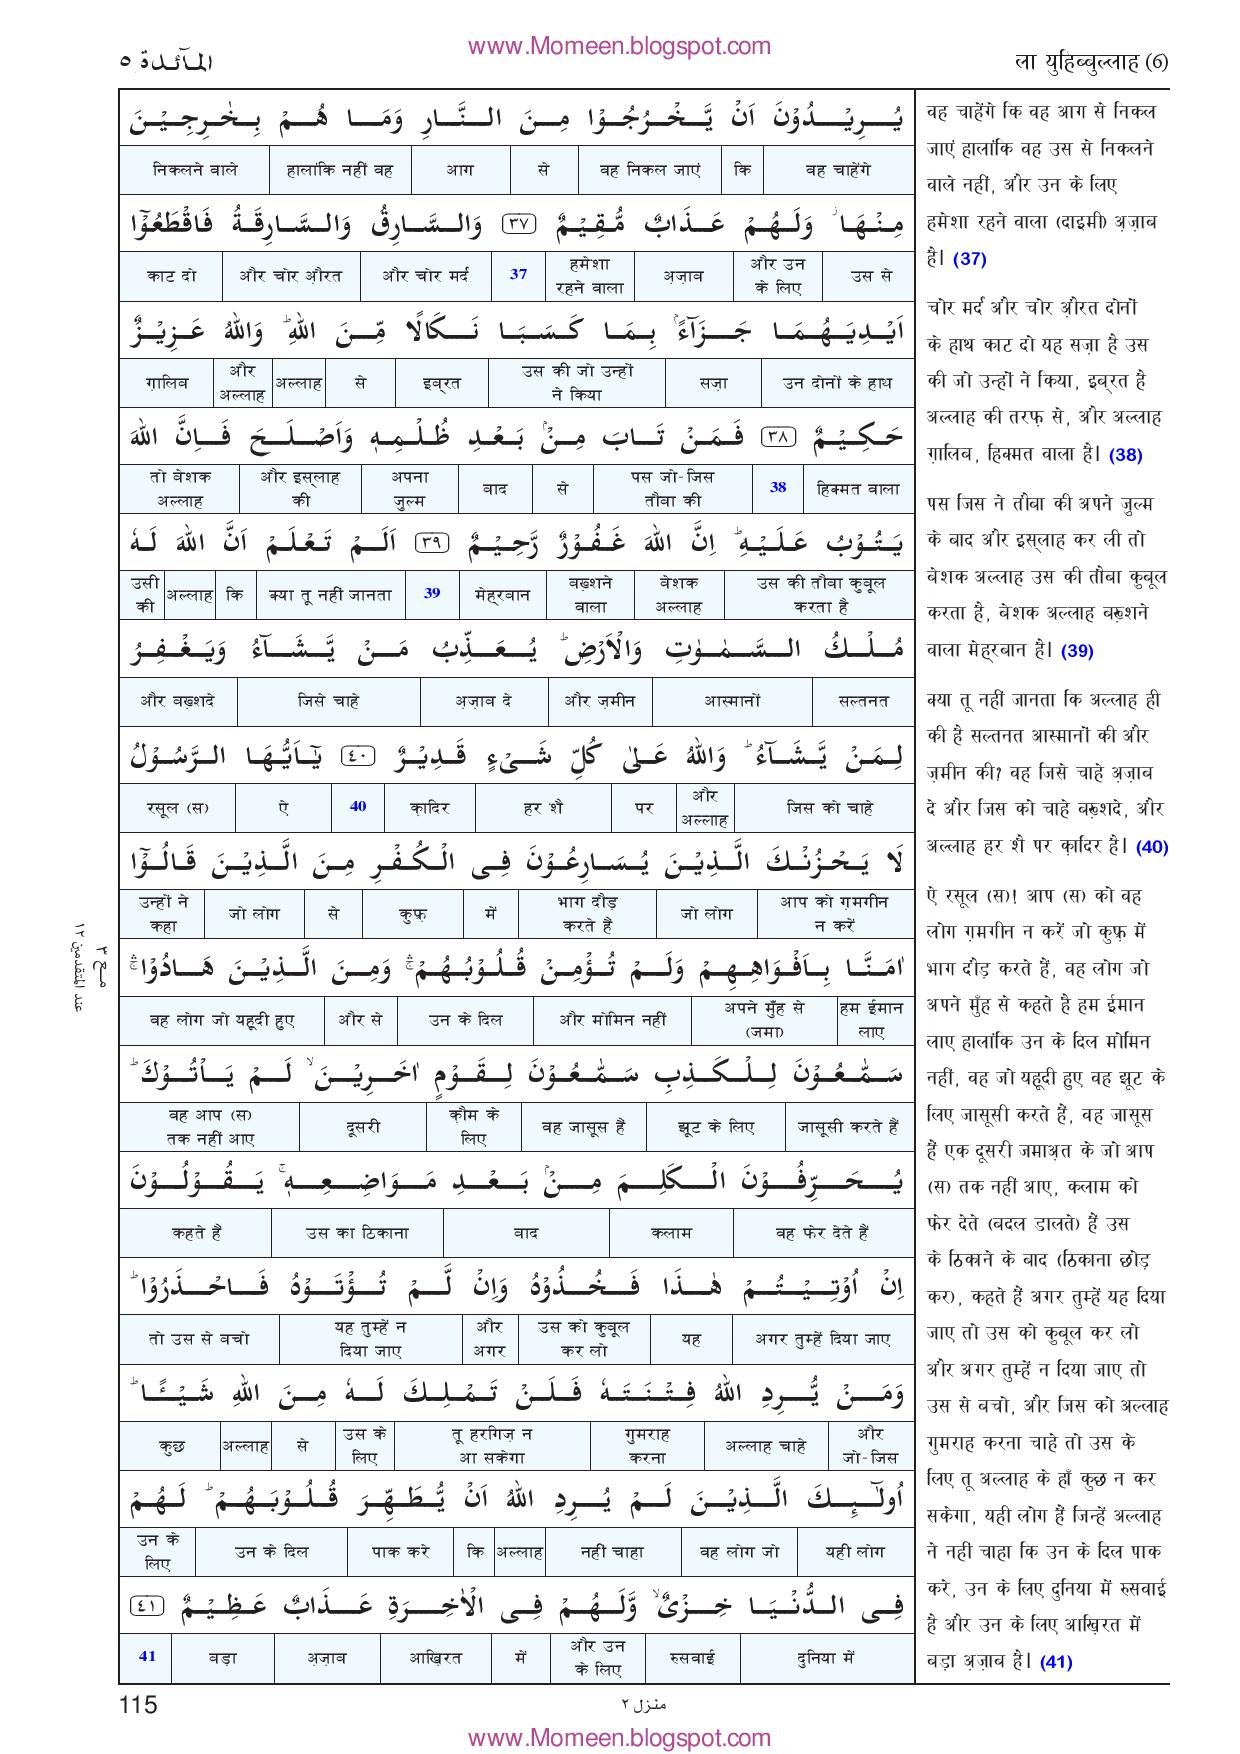 www.Momeen.blogspot.com
المآئدة ٥
ला युहिब्बुल्लाह (6)
يُرِيْدُوْنَ اَنْ يَّخْرُجُوْا مِنَ النَّارِ وَمَا هُمْ بِخٰرِجِيْنَ
वह चाहेंगे | कि | वह निकल जाएं | से | आग | हालांकि नहीं वह | निकलने वाले
مِنْهَا ۫ وَلَهُمْ عَذَابٌ مُّقِيْمٌ ٣٧ وَالسَّارِقُ وَالسَّارِقَةُ فَاقْطَعُوْٓا
उस से | और उन के लिए | अ़ज़ाब | हमेशा रहने वाला | 37 | और चोर मर्द | और चोर औ़रत | काट दो
اَيْدِيَهُمَا جَزَآءًۢ بِمَا كَسَبَا نَكَالًا مِّنَ اللهِ ؕ وَاللهُ عَزِيْزٌ
उन दोनों के हाथ | सज़ा | उस की जो उन्हों ने किया | इब्रत | से | अल्लाह | और अल्लाह | ग़ालिब
حَكِيْمٌ ٣٨ فَمَنْ تَابَ مِنْۢ بَعْدِ ظُلْمِهٖ وَاَصْلَحَ فَاِنَّ اللهَ
हिक्मत वाला | 38 | पस जो-जिस तौबा की | से | बाद | अपना जुल्म | और इस्लाह की | तो बेशक अल्लाह
يَتُوْبُ عَلَيْهِ ؕ اِنَّ اللهَ غَفُوْرٌ رَّحِيْمٌ ٣٩ اَلَمْ تَعْلَمْ اَنَّ اللهَ لَهٗ
उस की तौबा कुबूल करता है | बेशक अल्लाह | बख़्शने वाला | मेह्रबान | 39 | क्या तू नहीं जानता | कि | अल्लाह | उसी की
مُلْكُ السَّمٰوٰتِ وَالْاَرْضِ ؕ يُعَذِّبُ مَنْ يَّشَآءُ وَيَغْفِرُ
सल्तनत | आस्मानों | और ज़मीन | अ़ज़ाब दे | जिसे चाहे | और बख़्शदे
لِمَنْ يَّشَآءُ ؕ وَاللهُ عَلٰى كُلِّ شَىْءٍ قَدِيْرٌ ٤٠ يٰٓاَيُّهَا الرَّسُوْلُ
जिस को चाहे | और अल्लाह | पर | हर शै | क़ादिर | 40 | ऐ | रसूल (स)
لَا يَحْزُنْكَ الَّذِيْنَ يُسَارِعُوْنَ فِى الْكُفْرِ مِنَ الَّذِيْنَ قَالُوْٓا
आप को ग़मगीन न करें | जो लोग | भाग दौड़ करते हैं | में | कुफ़्र | से | जो लोग | उन्हों ने कहा
اٰمَنَّا بِاَفْوَاهِهِمْ وَلَمْ تُؤْمِنْ قُلُوْبُهُمْ ۛ وَمِنَ الَّذِيْنَ هَادُوْا ۛ
हम ईमान लाए | अपने मुँह से (जमा) | और मोमिन नहीं | उन के दिल | और से | वह लोग जो यहूदी हुए
سَمّٰعُوْنَ لِلْكَذِبِ سَمّٰعُوْنَ لِقَوْمٍ اٰخَرِيْنَ ۙ لَمْ يَاْتُوْكَ ؕ
जासूसी करते हैं | झूट के लिए | वह जासूस हैं | क़ौम के लिए | दूसरी | वह आप (स) तक नहीं आए
يُحَرِّفُوْنَ الْكَلِمَ مِنْۢ بَعْدِ مَوَاضِعِهٖ ۚ يَقُوْلُوْنَ
वह फेर देते हैं | कलाम | बाद | उस का ठिकाना | कहते हैं
اِنْ اُوْتِيْتُمْ هٰذَا فَخُذُوْهُ وَاِنْ لَّمْ تُؤْتَوْهُ فَاحْذَرُوْا ؕ
अगर तुम्हें दिया जाए | यह | उस को कुबूल कर लो | और अगर | यह तुम्हें न दिया जाए | तो उस से बचो
وَمَنْ يُّرِدِ اللهُ فِتْنَتَهٗ فَلَنْ تَمْلِكَ لَهٗ مِنَ اللهِ شَيْـًٔا ؕ
और जो-जिस | अल्लाह चाहे | गुमराह करना | तू हरगिज़ न आ सकेगा | उस के लिए | से | अल्लाह | कुछ
اُولٰٓئِكَ الَّذِيْنَ لَمْ يُرِدِ اللهُ اَنْ يُّطَهِّرَ قُلُوْبَهُمْ ؕ لَهُمْ
यही लोग | वह लोग जो | नहीं चाहा | अल्लाह | कि | पाक करे | उन के दिल | उन के लिए
فِى الدُّنْيَا خِزْىٌ ۙ وَّلَهُمْ فِى الْاٰخِرَةِ عَذَابٌ عَظِيْمٌ ٤١
दुनिया में | रुसवाई | और उन के लिए | में | आख़िरत | अ़ज़ाब | बड़ा | 41
वह चाहेंगे कि वह आग से निकल
जाएं हालांकि वह उस से निकलने
वाले नहीं, और उन के लिए
हमेशा रहने वाला (दाइमी) अ़ज़ाब
है। (37)
चोर मर्द और चोर औ़रत दोनों
के हाथ काट दो यह सज़ा है उस
की जो उन्हों ने किया, इब्रत है
अल्लाह की तरफ़ से, और अल्लाह
ग़ालिब, हिक्मत वाला है। (38)
पस जिस ने तौबा की अपने जुल्म
के बाद और इस्लाह कर ली तो
बेशक अल्लाह उस की तौबा कुबूल
करता है, बेशक अल्लाह बख़्शने
वाला मेह्रबान है। (39)
क्या तू नहीं जानता कि अल्लाह ही
की है सल्तनत आस्मानों की और
ज़मीन की? वह जिसे चाहे अ़ज़ाब
दे और जिस को चाहे बख़्शदे, और
अल्लाह हर शै पर क़ादिर है। (40)
ऐ रसूल (स)! आप (स) को वह
लोग ग़मगीन न करें जो कुफ़्र में
भाग दौड़ करते हैं, वह लोग जो
अपने मुँह से कहते है हम ईमान
लाए हालांकि उन के दिल मोमिन
नहीं, वह जो यहूदी हुए वह झूट के
लिए जासूसी करते हैं, वह जासूस
हैं एक दूसरी जमाअ़त के जो आप
(स) तक नहीं आए, कलाम को
फेर देते (बदल डालते) हैं उस
के ठिकाने के बाद (ठिकाना छोड़
कर), कहते हैं अगर तुम्हें यह दिया
जाए तो उस को कुबूल कर लो
और अगर तुम्हें न दिया जाए तो
उस से बचो, और जिस को अल्लाह
गुमराह करना चाहे तो उस के
लिए तू अल्लाह के हाँ कुछ न कर
सकेगा, यही लोग हैं जिन्हें अल्लाह
ने नहीं चाहा कि उन के दिल पाक
करे, उन के लिए दुनिया में रुसवाई
है और उन के लिए आख़िरत में
बड़ा अ़ज़ाब है। (41)
مع ٣
عند المتقدمين ١٢
115
منزل ٢
www.Momeen.blogspot.com